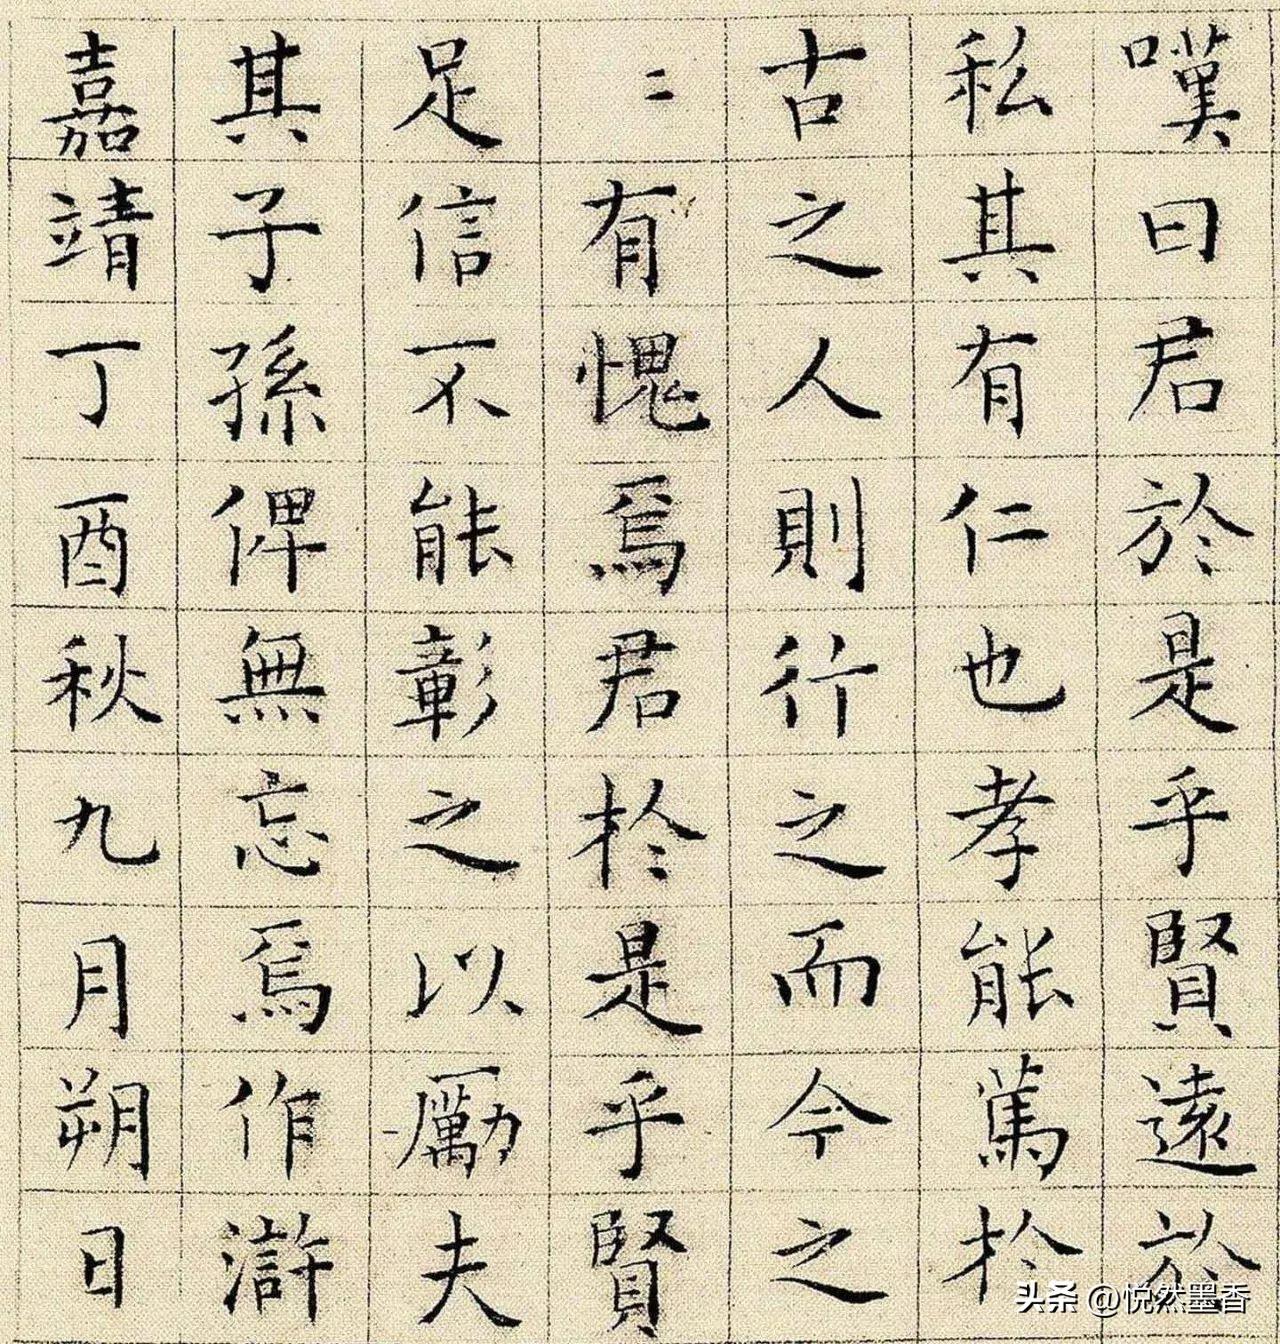 嘆曰君於是乎賢遠於
私其有仁也孝能篤於
古之人則行之而今之
〻有愧焉君於是乎賢
足信不能彰之以勵夫
其子孫俾無忘焉作滸
嘉靖丁酉秋九月朔日
头条 @悦然墨香